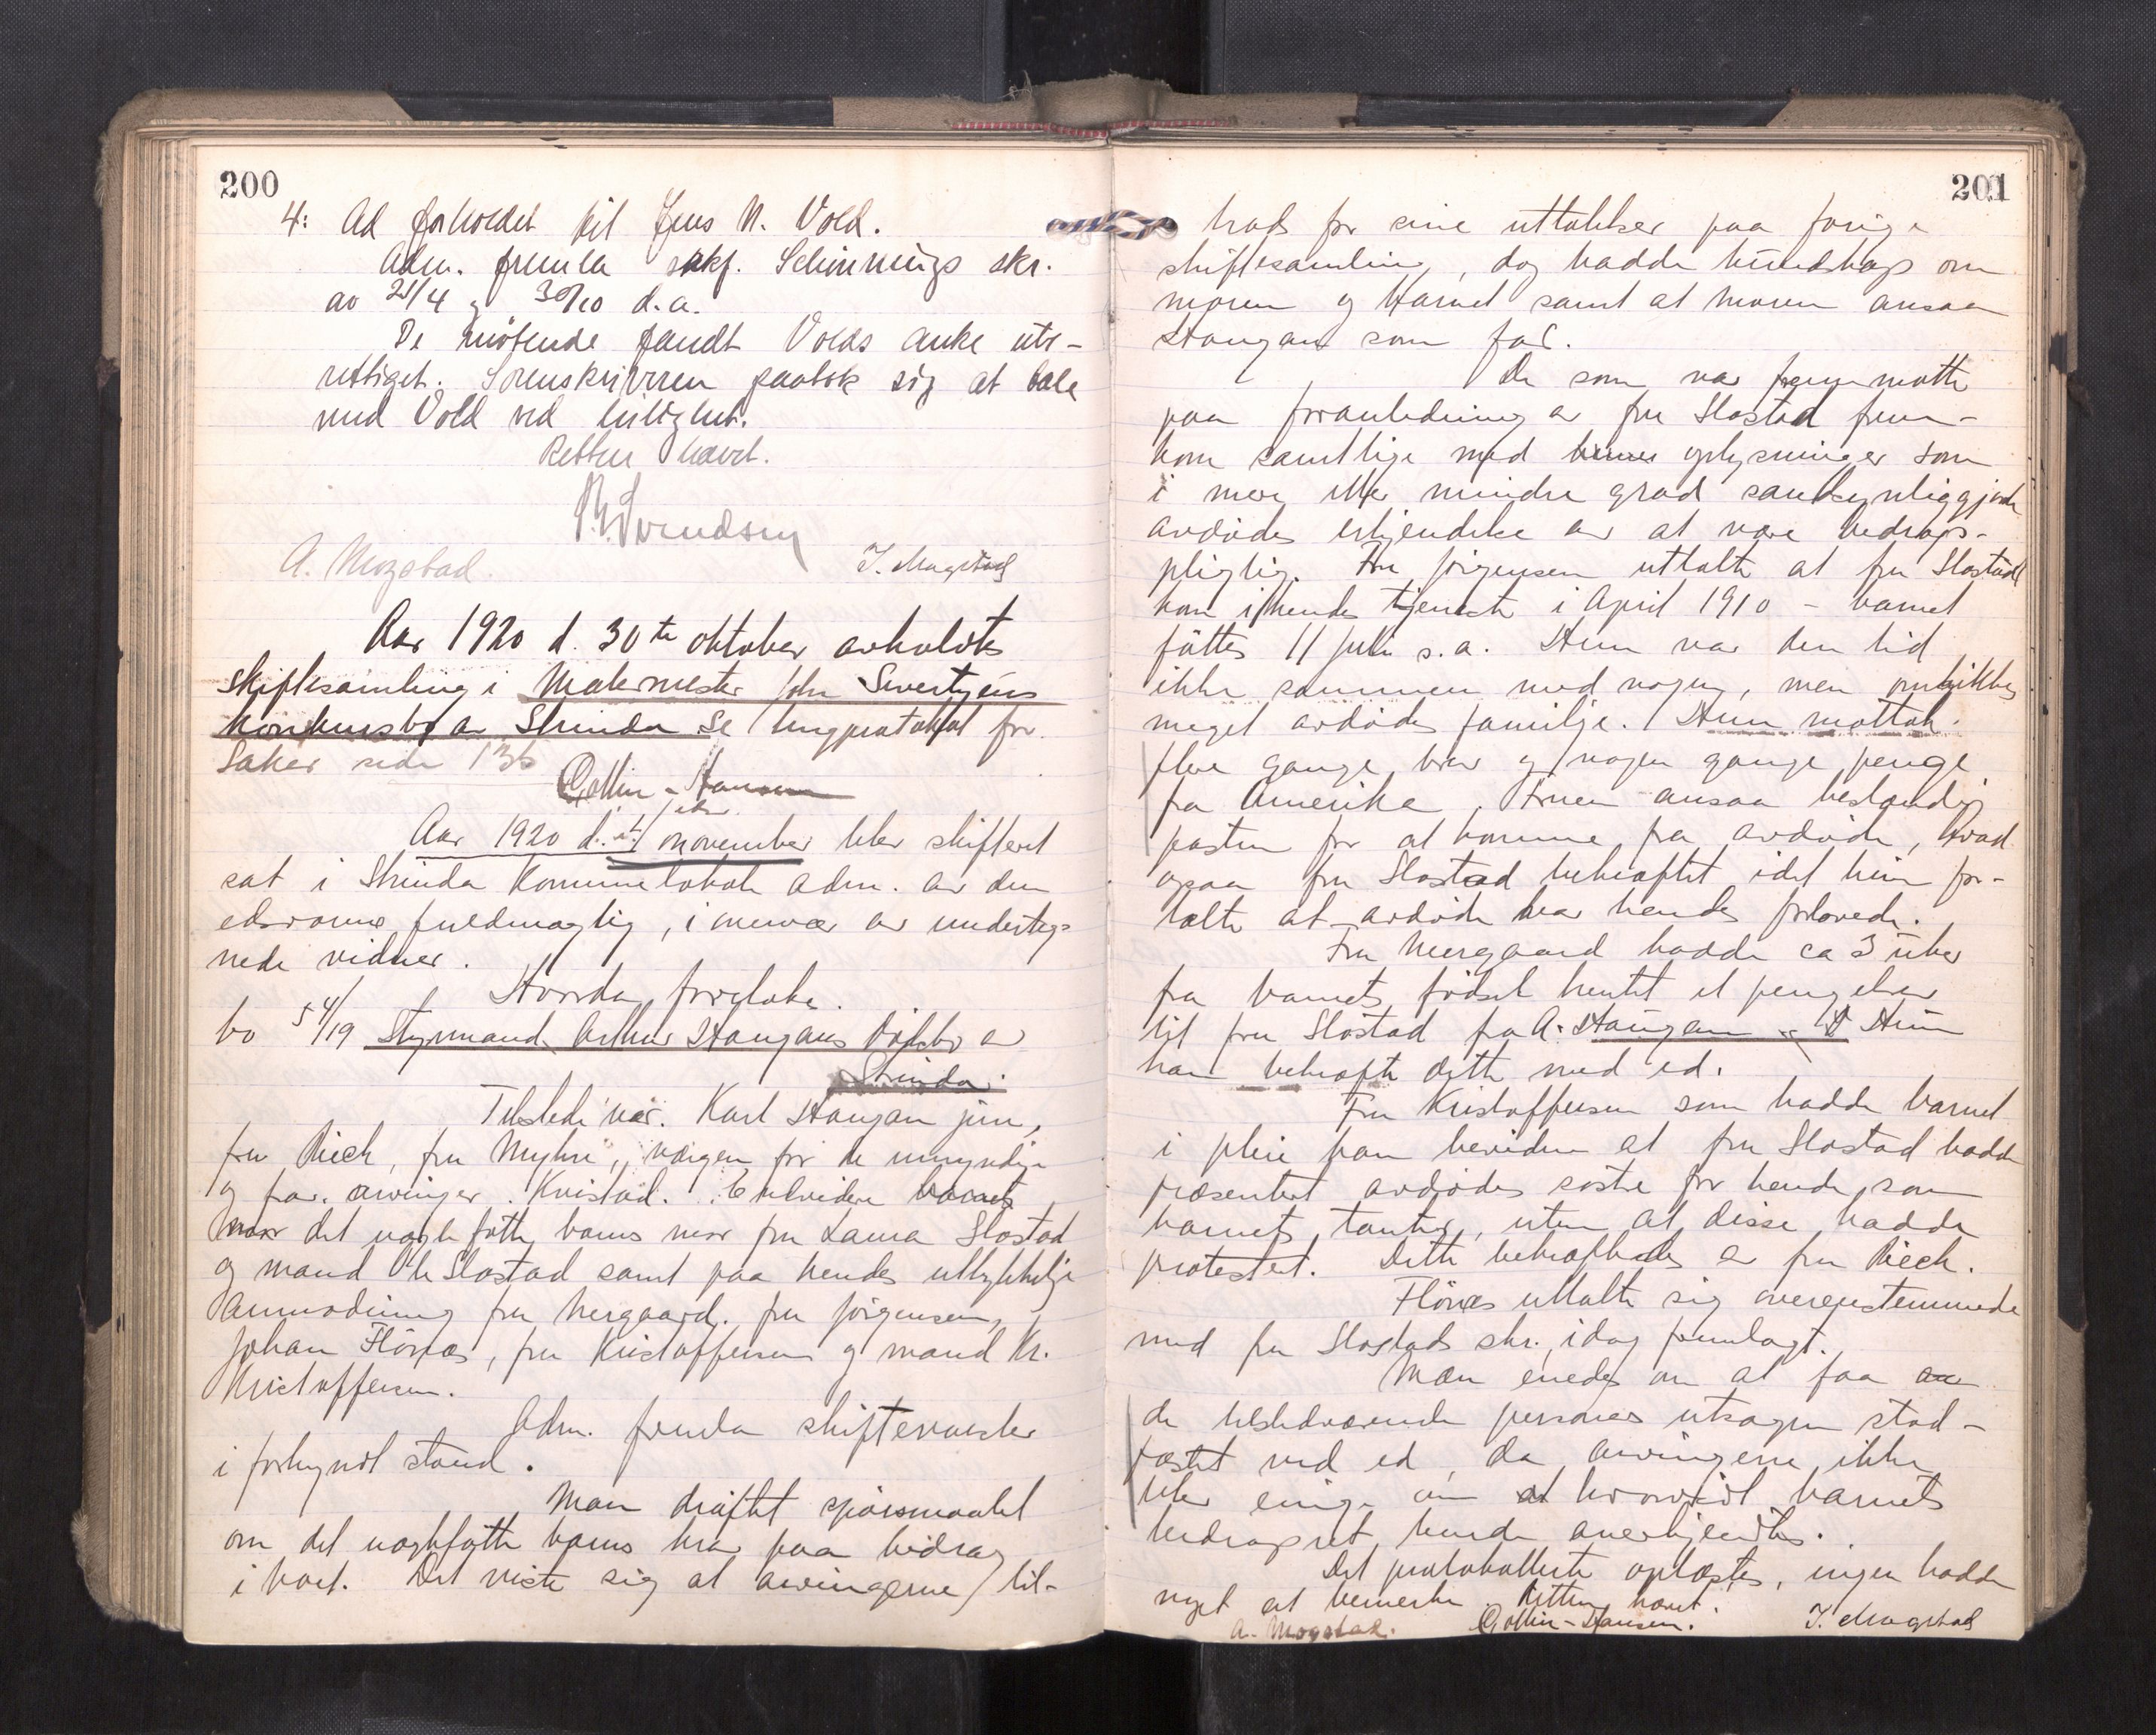 200
4: Ad forholdet til Jens N. Vold.
Adm. fremla sakf. Schinnings skr.
av 21/4 og 30/10 d.a.
De møtende fandt Volds anke ube-
rettiget. Sorenskriveren paatok sig at tale
med Vold ved leilighet.
Retten hævet.
Svendsen
A. Mogstad. I. Mogstad
Aar 1920 d. 30te oktober avholdtes
skiftesamling i Malermester John Sivertsens
konkursbo av Strinda Se tingprotokol for
Saker side 136
Collin-Hansen
fm.
Aar 1920 d. 1 november blev skifteret
sat i Strinda Kommunelokale adm. av den
edsvorne fuldmægtig, i nærvær av underteg-
nede vidner.
Hvorda foretokes.
bo 54/19 Styrmand Arthur Haugans dødsbo av
Strinda.
Tilstede var. Karl Haugan jun,
fru Rieck, fru Myhre, værgen for de umyndige
og frav. arvinger. Kvistad. Endvidere barnets
mor det uegte fødte barns mor fru Laura Slostad
og mand Ole Slostad samt paa hendes uttrykkelige
Anmodning fru Nergaard, fru Jörgensen,
Johan Flönæs, fru Kristoffersen og mand Kr.
Kristoffersen.
Adm. fremla skifteravister
i forkyndt stand.
Man drøftet spørsmaalet
om det uegtefødte barns krav paa bidrag
i boet. Det viste sig at arvingerne, til-
201
trods for sine uttalelser paa forrige
skiftesamling, dog hadde kundskap om
moren og barnet samt at moren ansaa
Haugan som far.
De som var fremmøtte
paa foranledning av fru Slostad frem-
kom samtlige med oplysninger som
i mer eller mindre grad sandsynliggjorde
avdødes erkjendelse av at være bidrags-
pligtig. Fru Jörgensen uttalte at fru Slostad
kom i hendes tjeneste i April 1910 - barnet
fødtes 11 juli s.a. Hun var den tid
ikke sammen med nogen, men omgikkes
meget avdødes familje. Hun mottok
flere gange brev og nogen gange penge
fra Amerika. Fruen ansaa bestandig
posten for at komme fra avdøde, hvad
ogsaa fru Slostad bekræftet idet hun for-
talte at avdøde var hendes forlovede.
Fru Nergaard hadde ca 3 uker
fra barnets fødsel hentet et pengebrev
til fru Slostad fra A. Haugan Hun
kan bekræfte dette med ed.
Fru Kristoffersen som hadde barnet
i pleie kan bevidne at fru Slostad hadde
præsentert avdødes søstre for hende som
barnets tanter, uten at disse hadde
protestert. Dette bekræftedes av fru Rieck.
Flönæs uttalte sig overensstemmende
med fru Slostads skr., idag fremlagt.
Man enedes om at faa
de tilstedeværende personers utsagn stad-
fæstet ved ed, da arvingerne ikke
blev enige om at hvorvidt barnets
bidragsret burde anerkjendtes.
Det protokollerte oplæstes, ingen hadde
noget at bemerke. Retten hævet.
A. Mogstad. Collin-Hansen. I. Mogstad